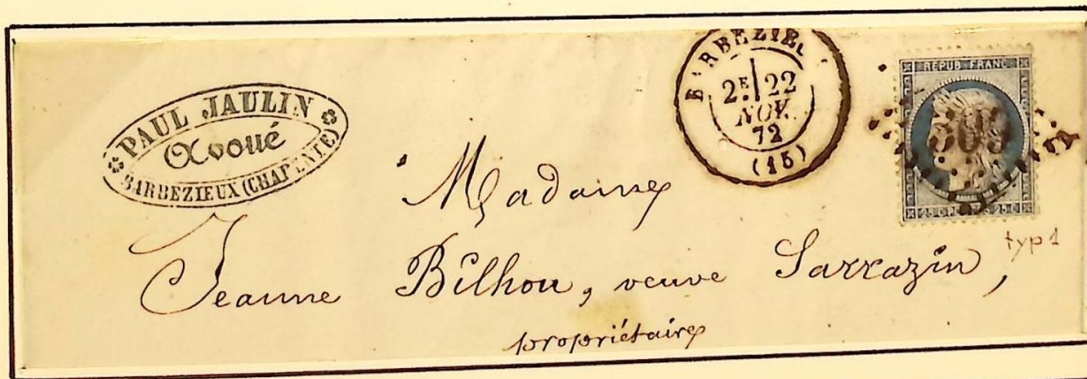 PAUL JAULIN
Avoué
BARBEZIEUX (CHARENTE)
BARBEZIEU
2E 22
NOV.
72
(15)
REPUB FRANC
305
25 C POSTES 25 C
typ 1
Madame
Jeanne Bilhou, veuve Sarrazin,
propriétaire